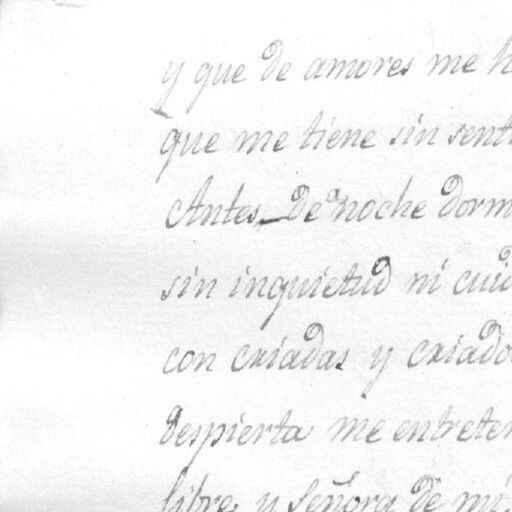 y que de amores me h
que me tiene sin sent
Antes de noche dorm
sin inquietud ni cuid
con criadas y criado
despierta me entreten
libre y señora de mi